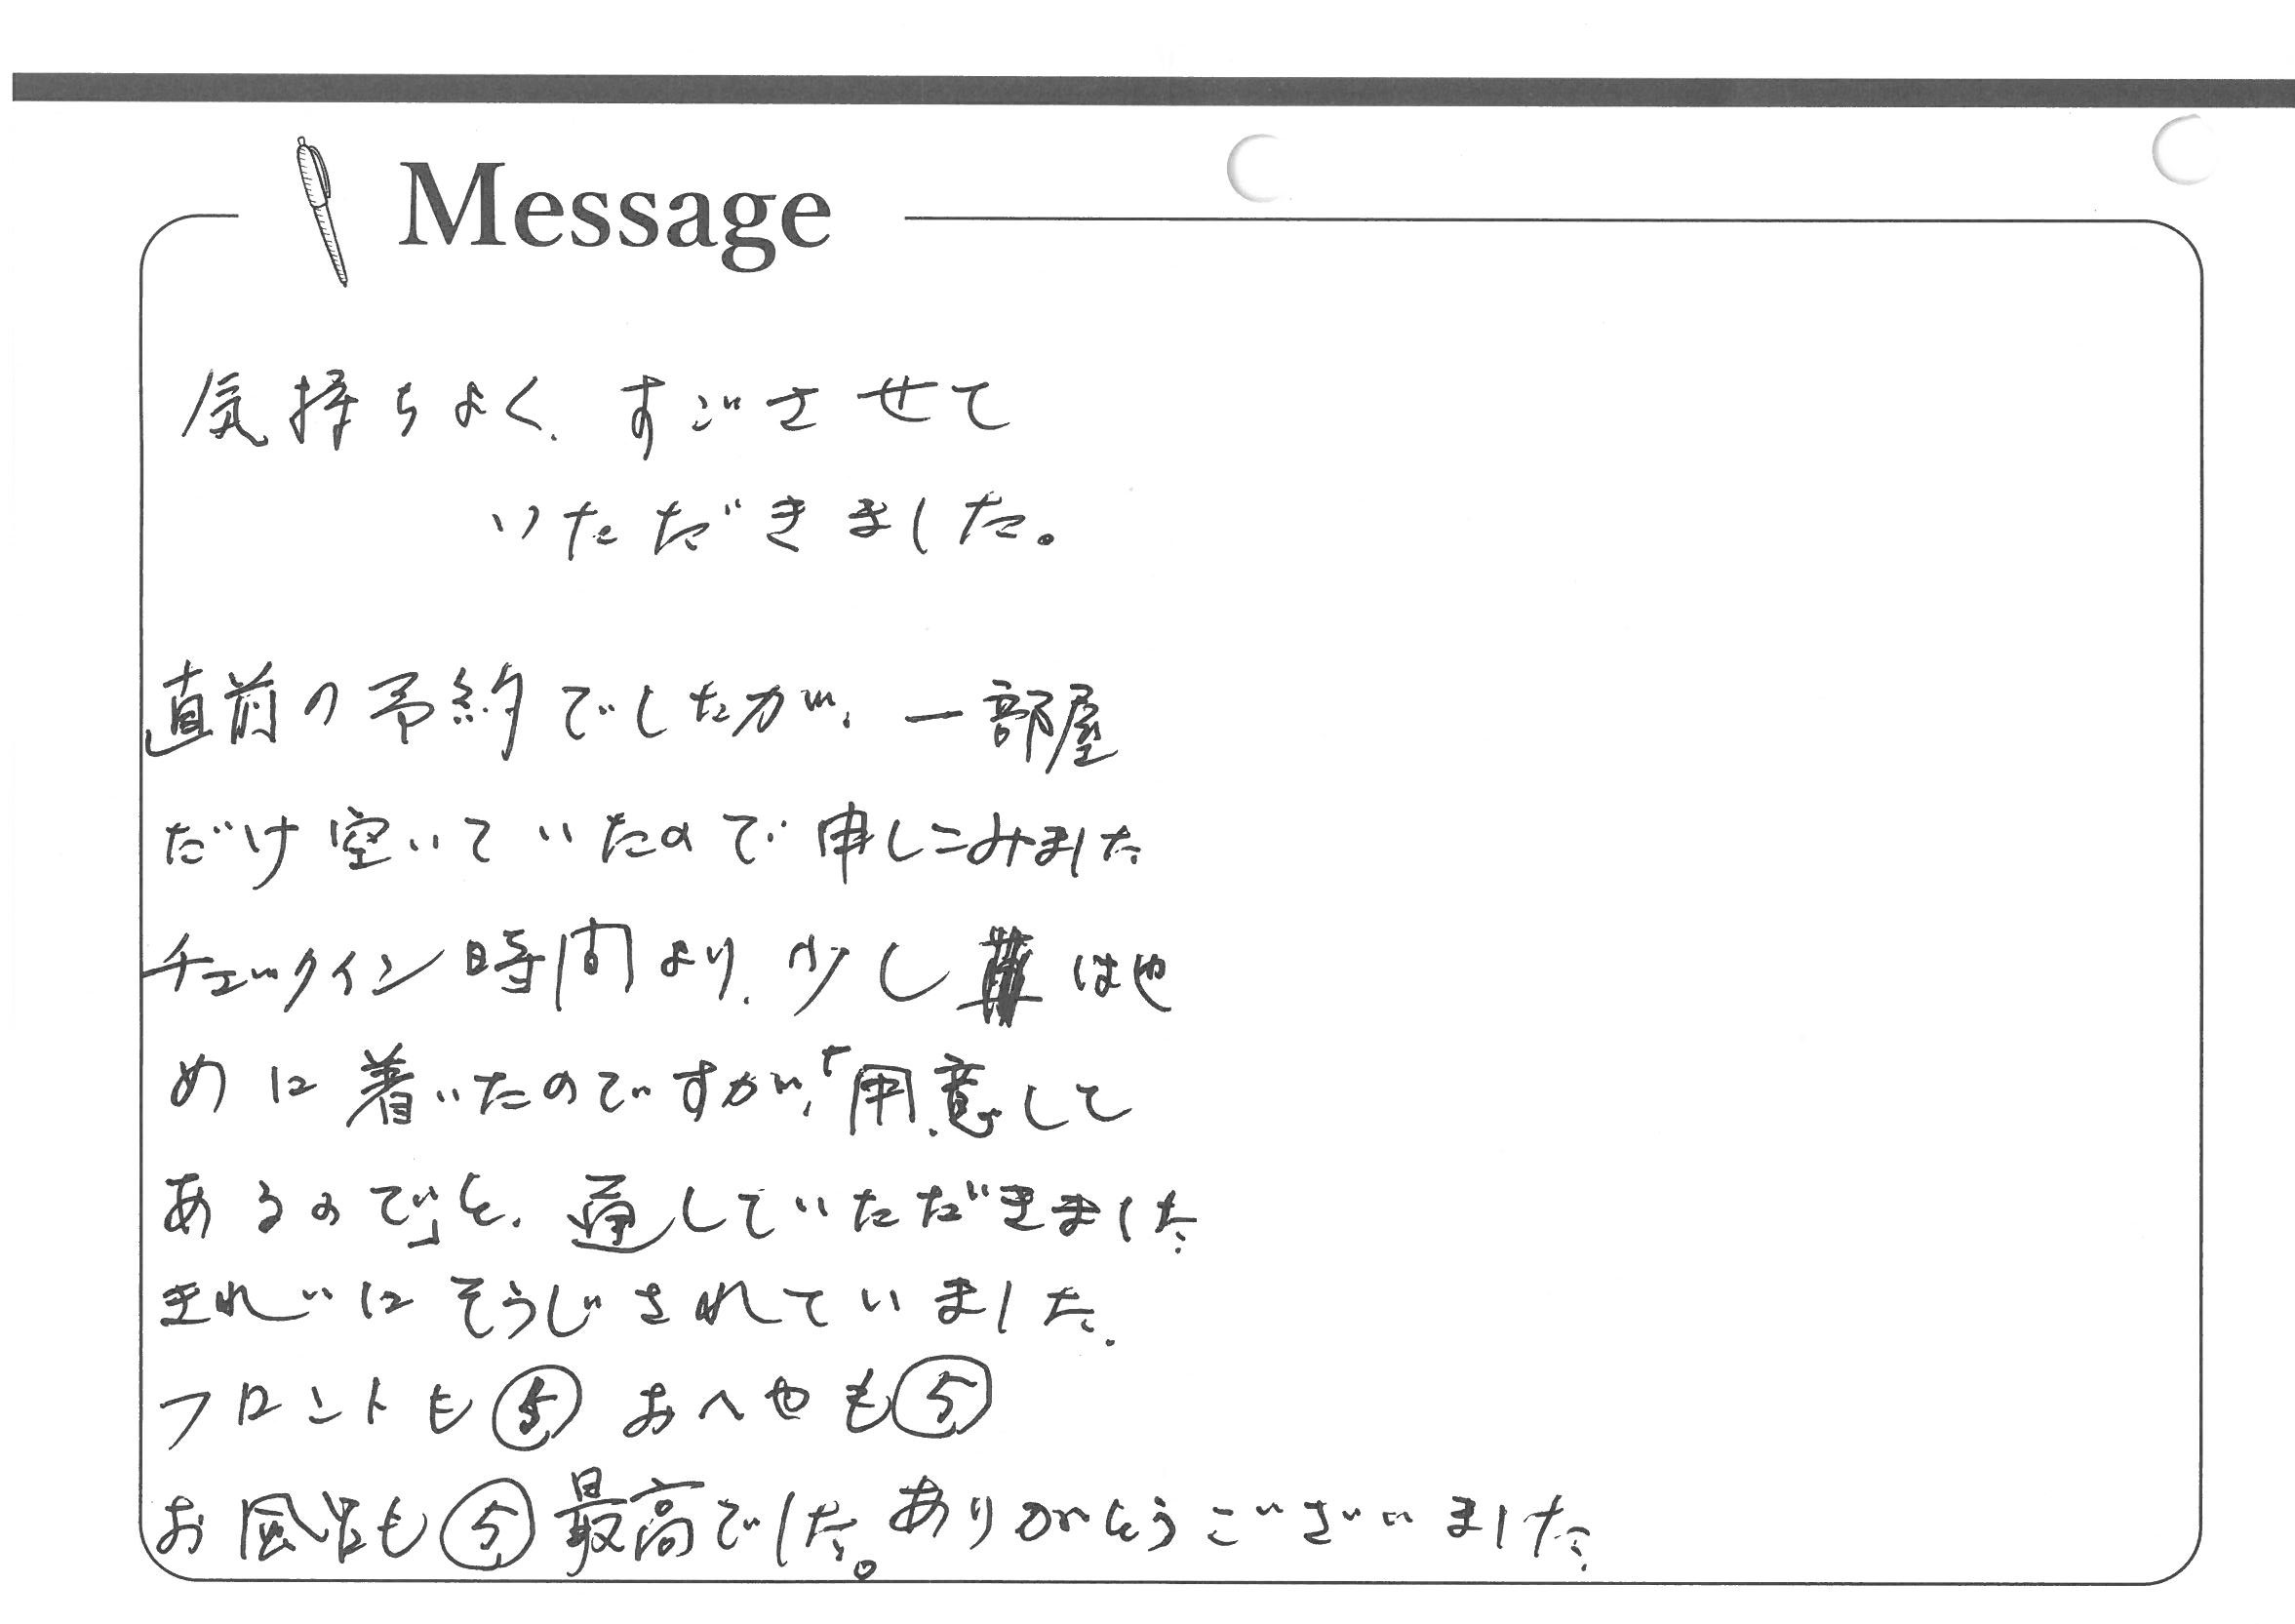 Message
気持ちよく、すごさせて
いただきました。
直前の予約でしたが、一部屋
だけ空いていたので申しこみました
チェックイン時間より、少しはや
めに着いたのですが、「用意して
あるので」と、通していただきました
きれいにそうじされていました。
フロントも⑤ おへやも⑤
お風呂も⑤最高でした。ありがとうございました